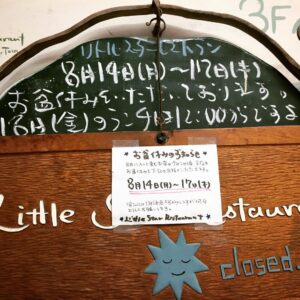 3F
リトルスターレストラン
8月14日(月)〜17日(木)
お盆休みをいただいております。
18日(金)のランチは12:00からですよ
お盆休みのお知らせ
8月14日(月)〜17日(木)
Little Star Restaurant
Little S staurant
closed.